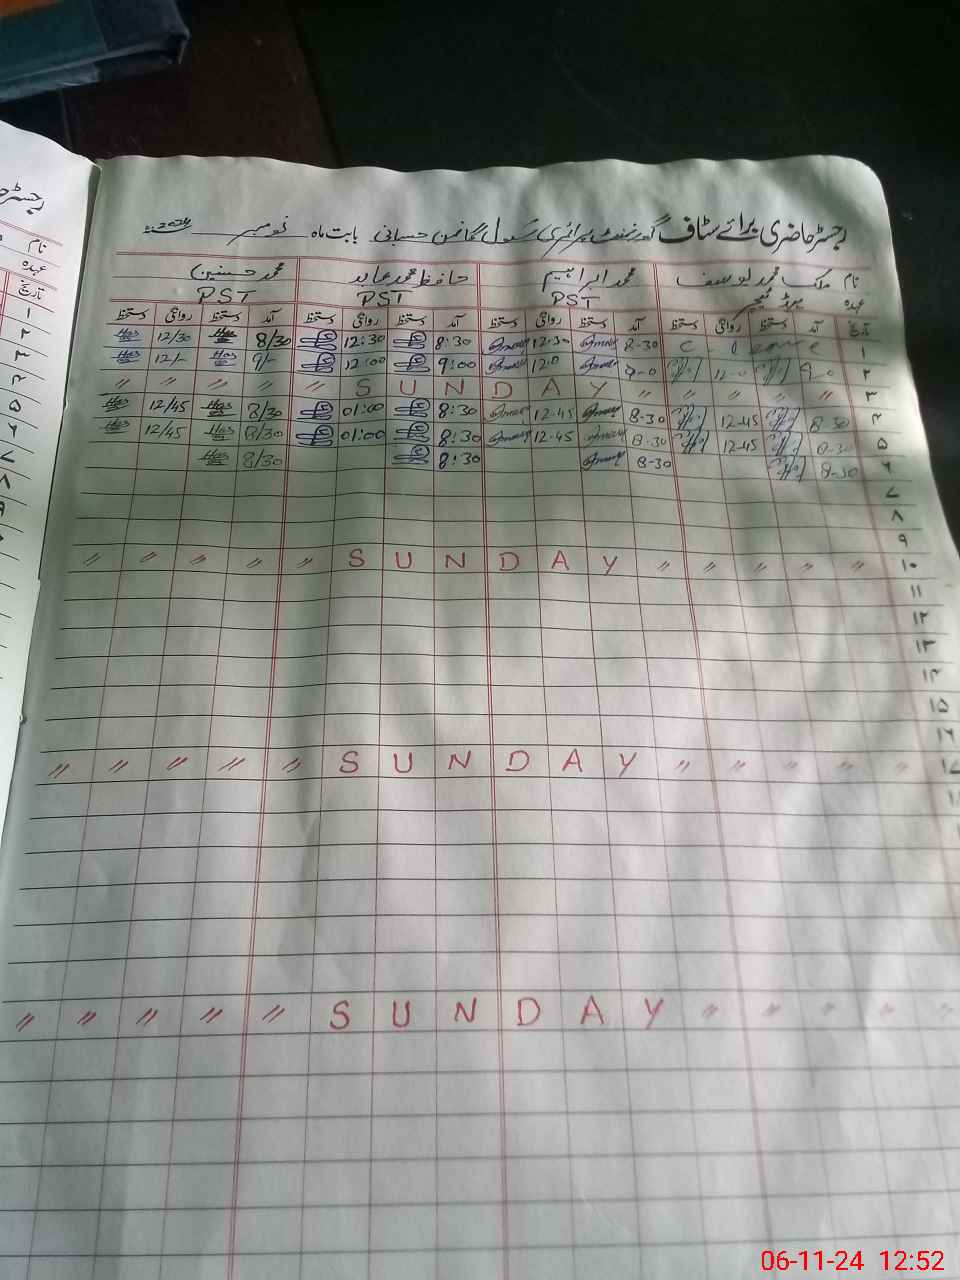 رجسٹر حاضری برائے سٹاف گورنمنٹ پرائمری سکول حسبانی بابت ماہ نومبر 2024
نام ملک محمد یوسف محمد ابراہیم حافظ محمد عابد محمد حسنین
عہدہ ہیڈ ٹیچر PST PST PST
تاریخ آمد دستخط روانگی دستخط آمد دستخط روانگی دستخط آمد دستخط روانگی دستخط آمد دستخط روانگی دستخط
۱ C. leave 8-30 12-30 8:30 12:30 8/30 12/30
۲ 9-0 12-0 9-0 12-0 9:00 12:00 9/- 12/-
۳ " " " " " S U N D A Y " " " " "
۴ 8-30 12-45 8-30 12-45 8:30 01:00 8/30 12/45
۵ 8-30 12-45 8-30 12-45 8:30 01:00 8/30 12/45
۶ 8-30 8-30 8:30 8/30
۷
۸
۹
۱۰ " " " " " S U N D A Y " " " " "
۱۱
۱۲
۱۳
۱۴
۱۵
۱۶
۱۷ " " " " " S U N D A Y " " " " "
" " " " " S U N D A Y " " " " "
رجسٹر
نام
عہدہ
تاریخ
۱
۲
۳
۴
۵
۶
۷
۸
۹
06-11-24 12:52